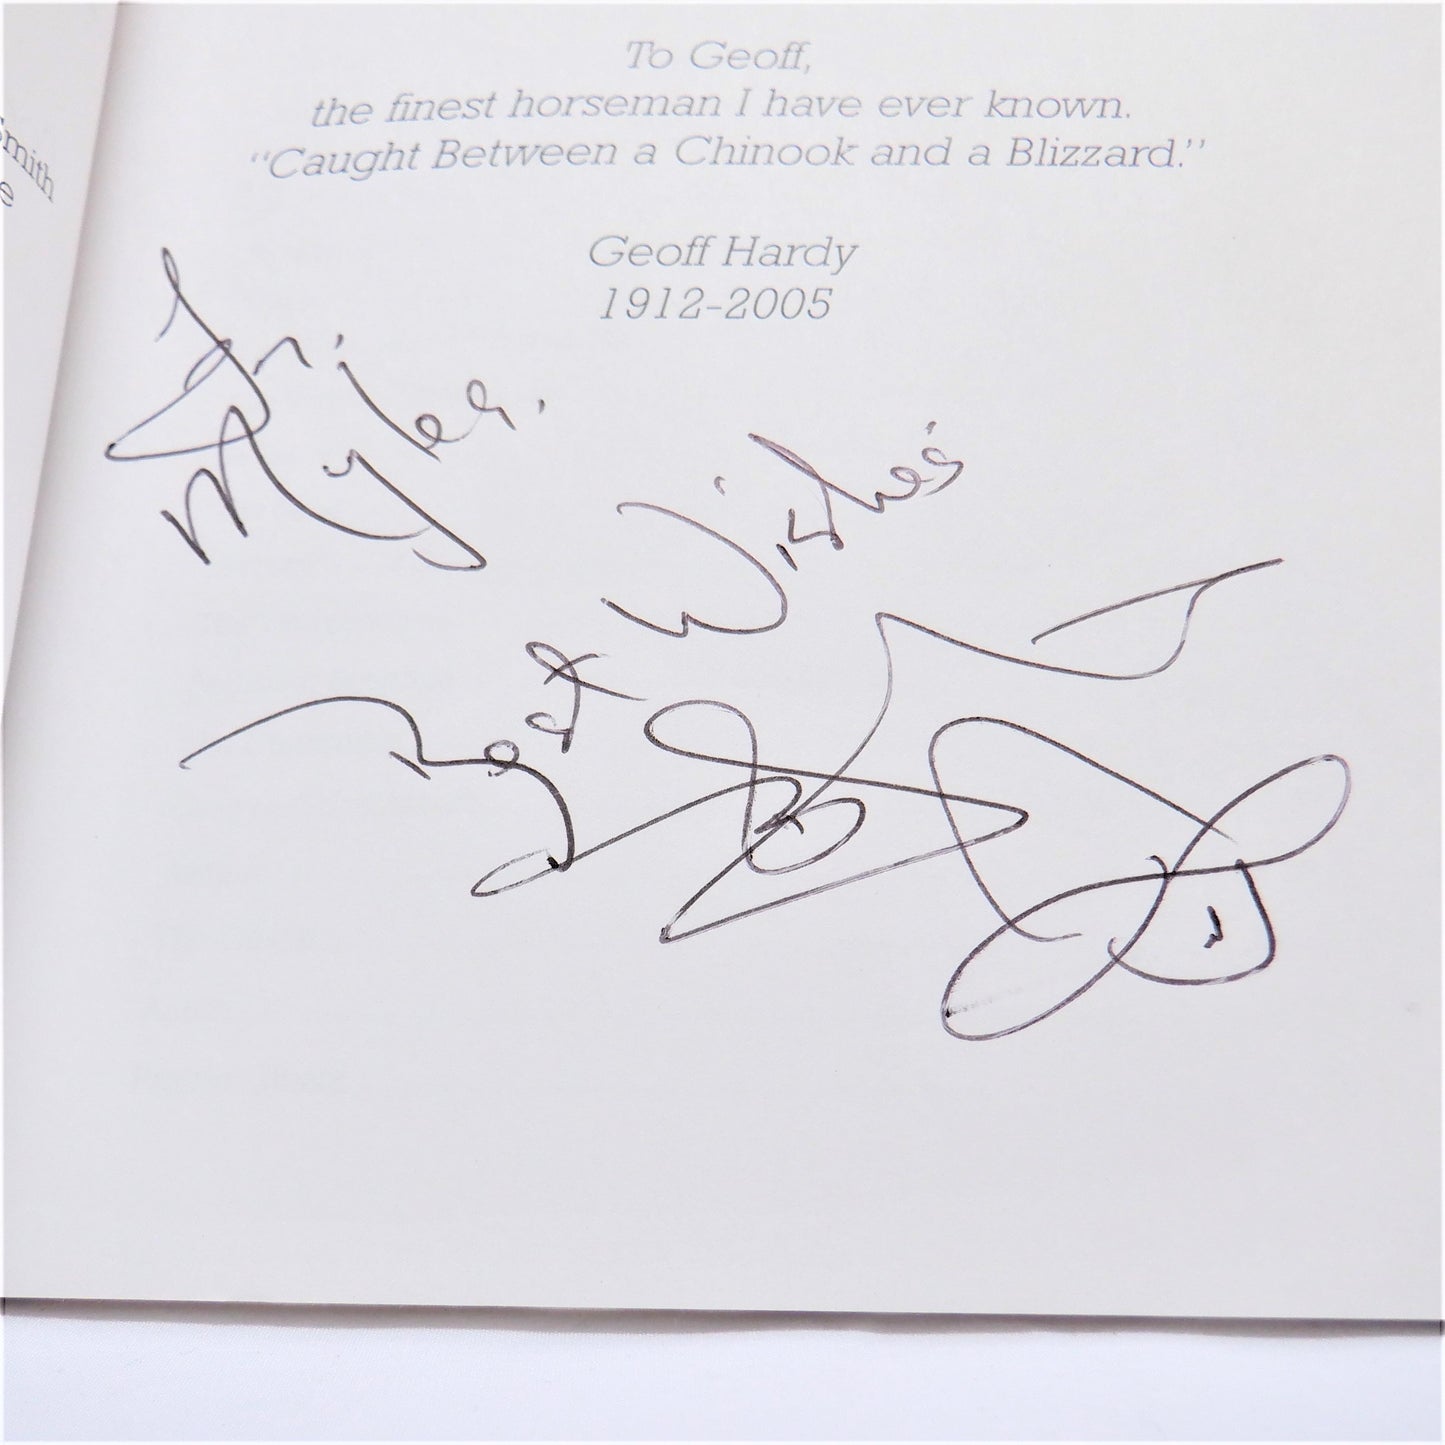 Smith
e
To Geoff,
the finest horseman I have ever known.
"Caught Between a Chinook and a Blizzard."
Geoff Hardy
1912-2005
Myles.
Best Wishes